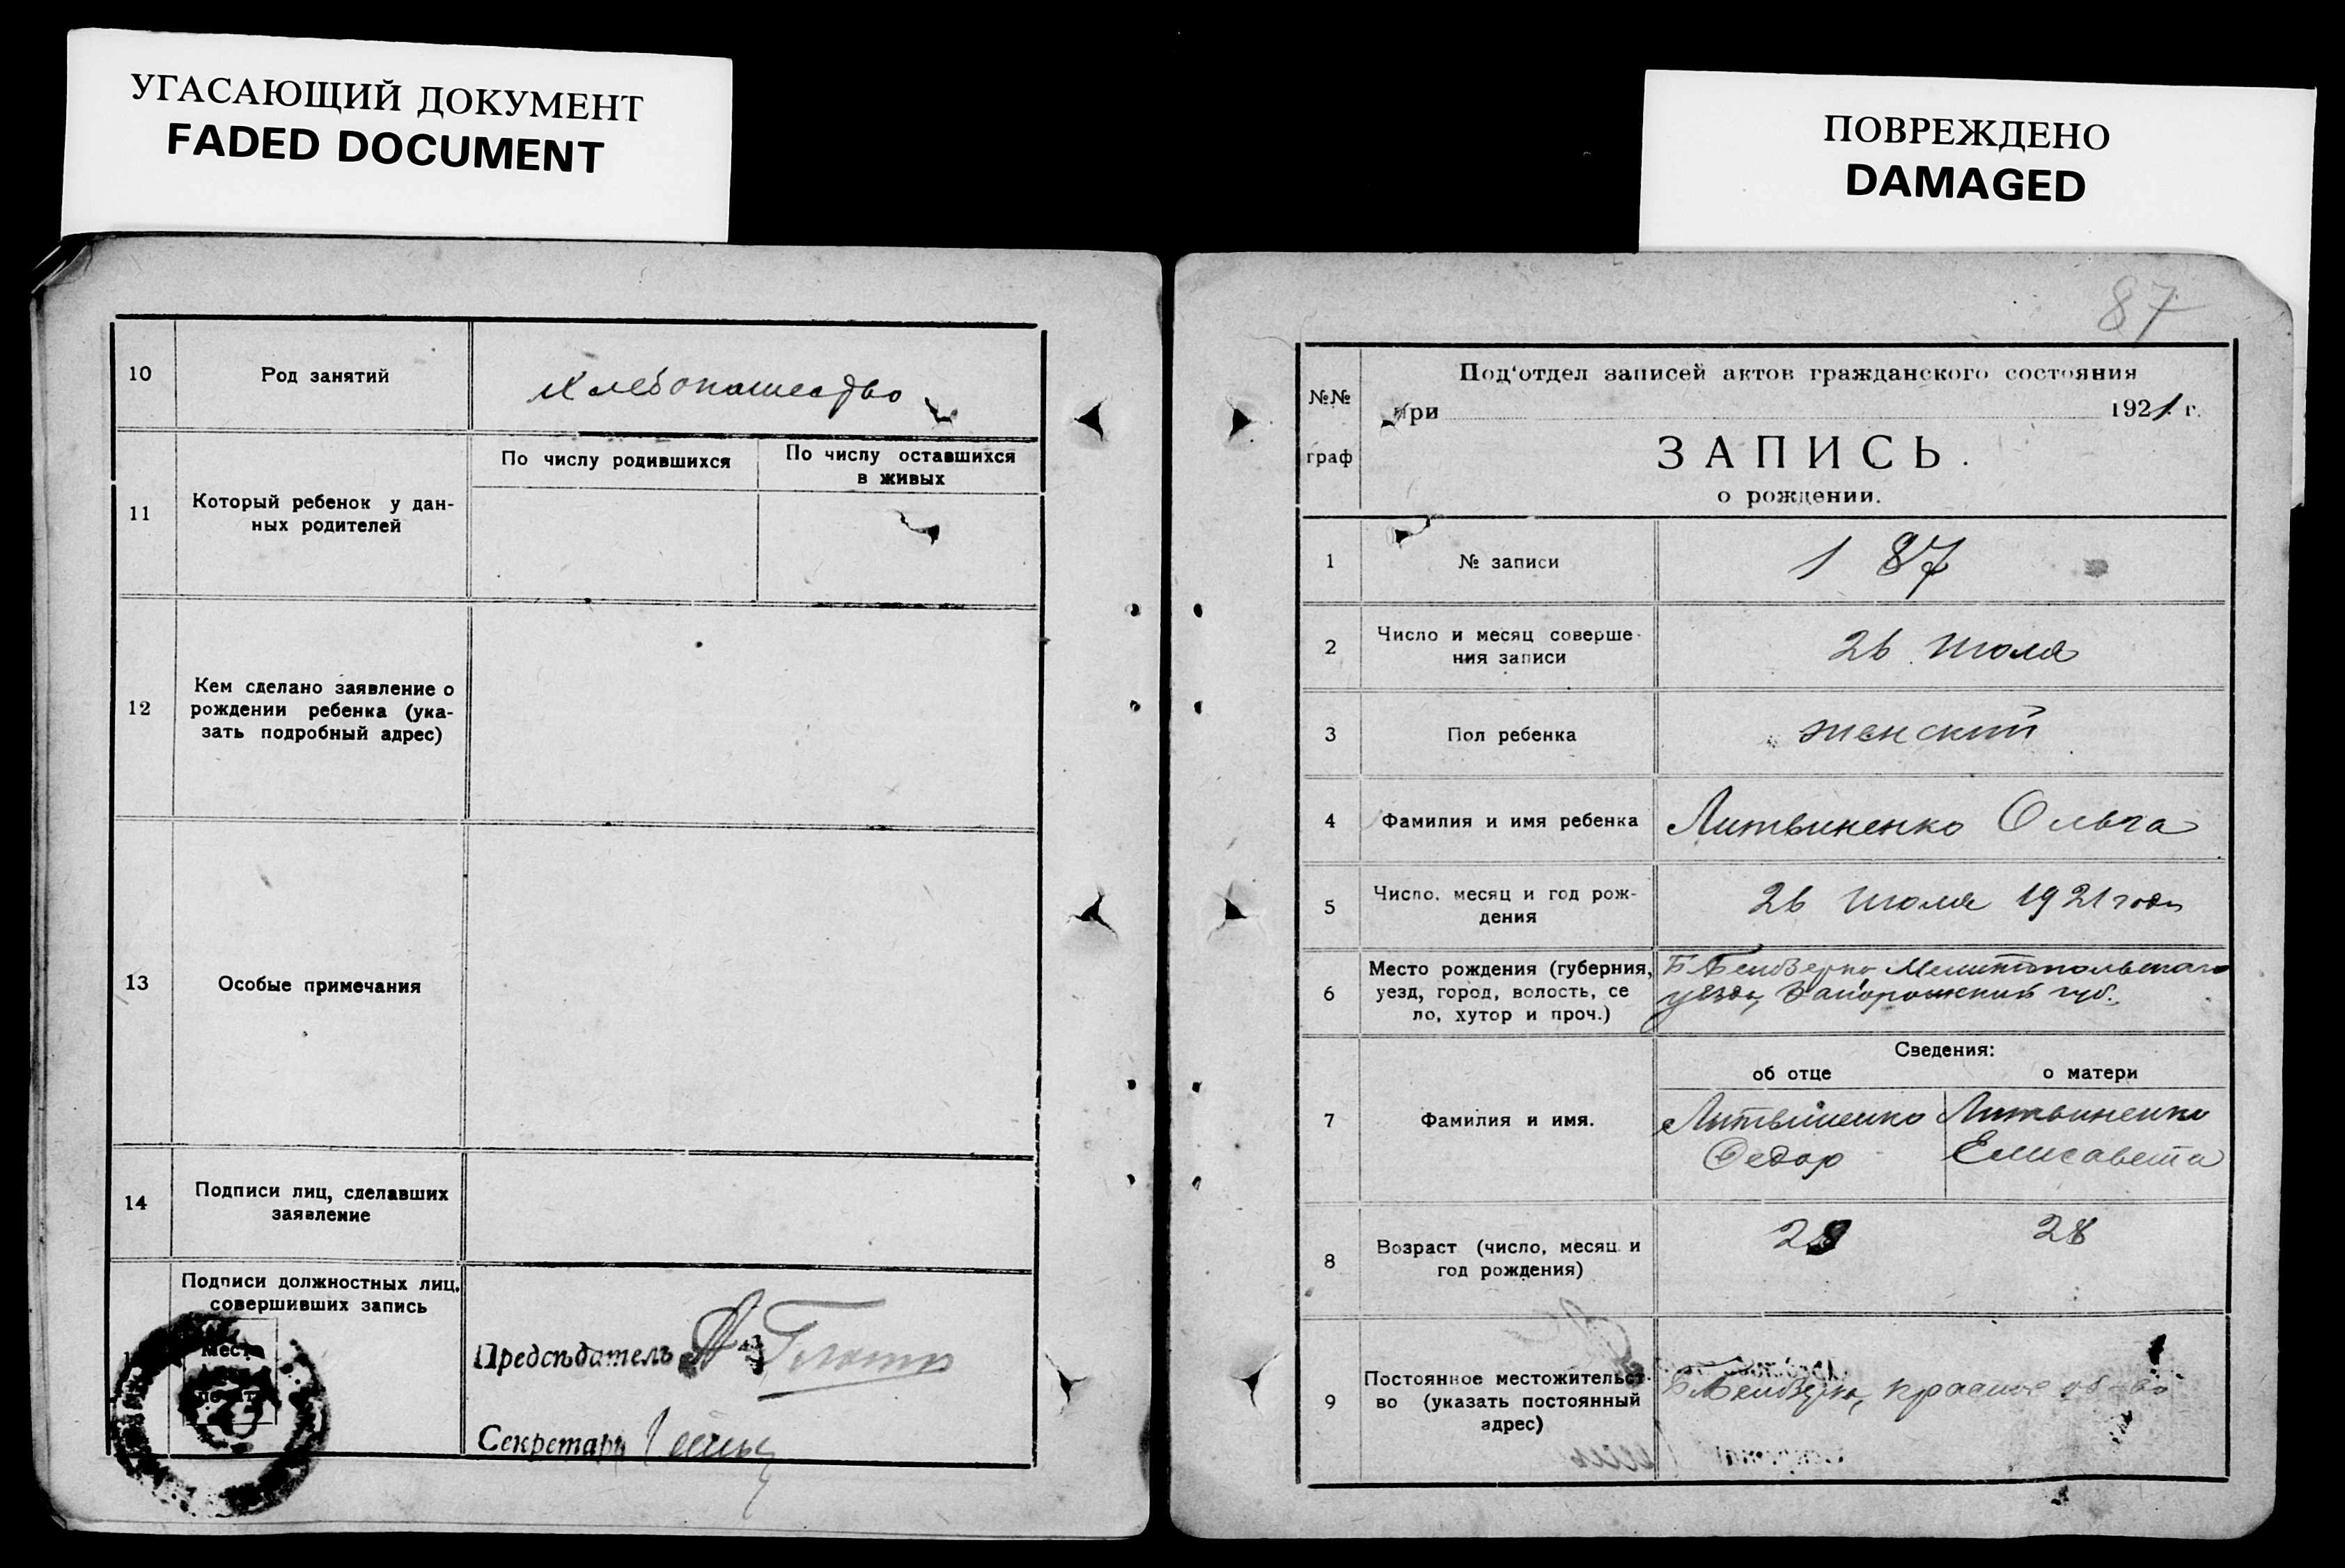 УГАСАЮЩИЙ ДОКУМЕНТ
FADED DOCUMENT
ПОВРЕЖДЕНО
DAMAGED
10
Род занятий
Хлебопашество
11
Который ребенок у дан-
ных родителей
По числу родившихся
По числу оставшихся
в живых
12
Кем сделано заявление о
рождении ребенка (ука-
зать подробный адрес)
13
Особые примечания
14
Подписи лиц, сделавших
заявление
Подписи должностных лиц,
совершивших запись
Место
Предсѣдатель
Секретарь
87
№№
граф
Под'отдел записей актов гражданского состояния
при 1921 г.
ЗАПИСЬ.
о рождении.
1
№ записи
187
2
Число и месяц соверше-
ния записи
26 Июля
3
Пол ребенка
женский
4
Фамилия и имя ребенка
Литвиненко Ольга
5
Число, месяц и год рож-
дения
26 Июля 1921 года
6
Место рождения (губерния,
уезд, город, волость, се
ло, хутор и проч.)
Мелитопольского
уезда, Запорожский губ.
Сведения:
об отце
о матери
7
Фамилия и имя.
Литвиненко
Федор
Литвиненко
Елисавета
8
Возраст (число, месяц и
год рождения)
28
9
Постоянное местожительст-
во (указать постоянный
адрес)